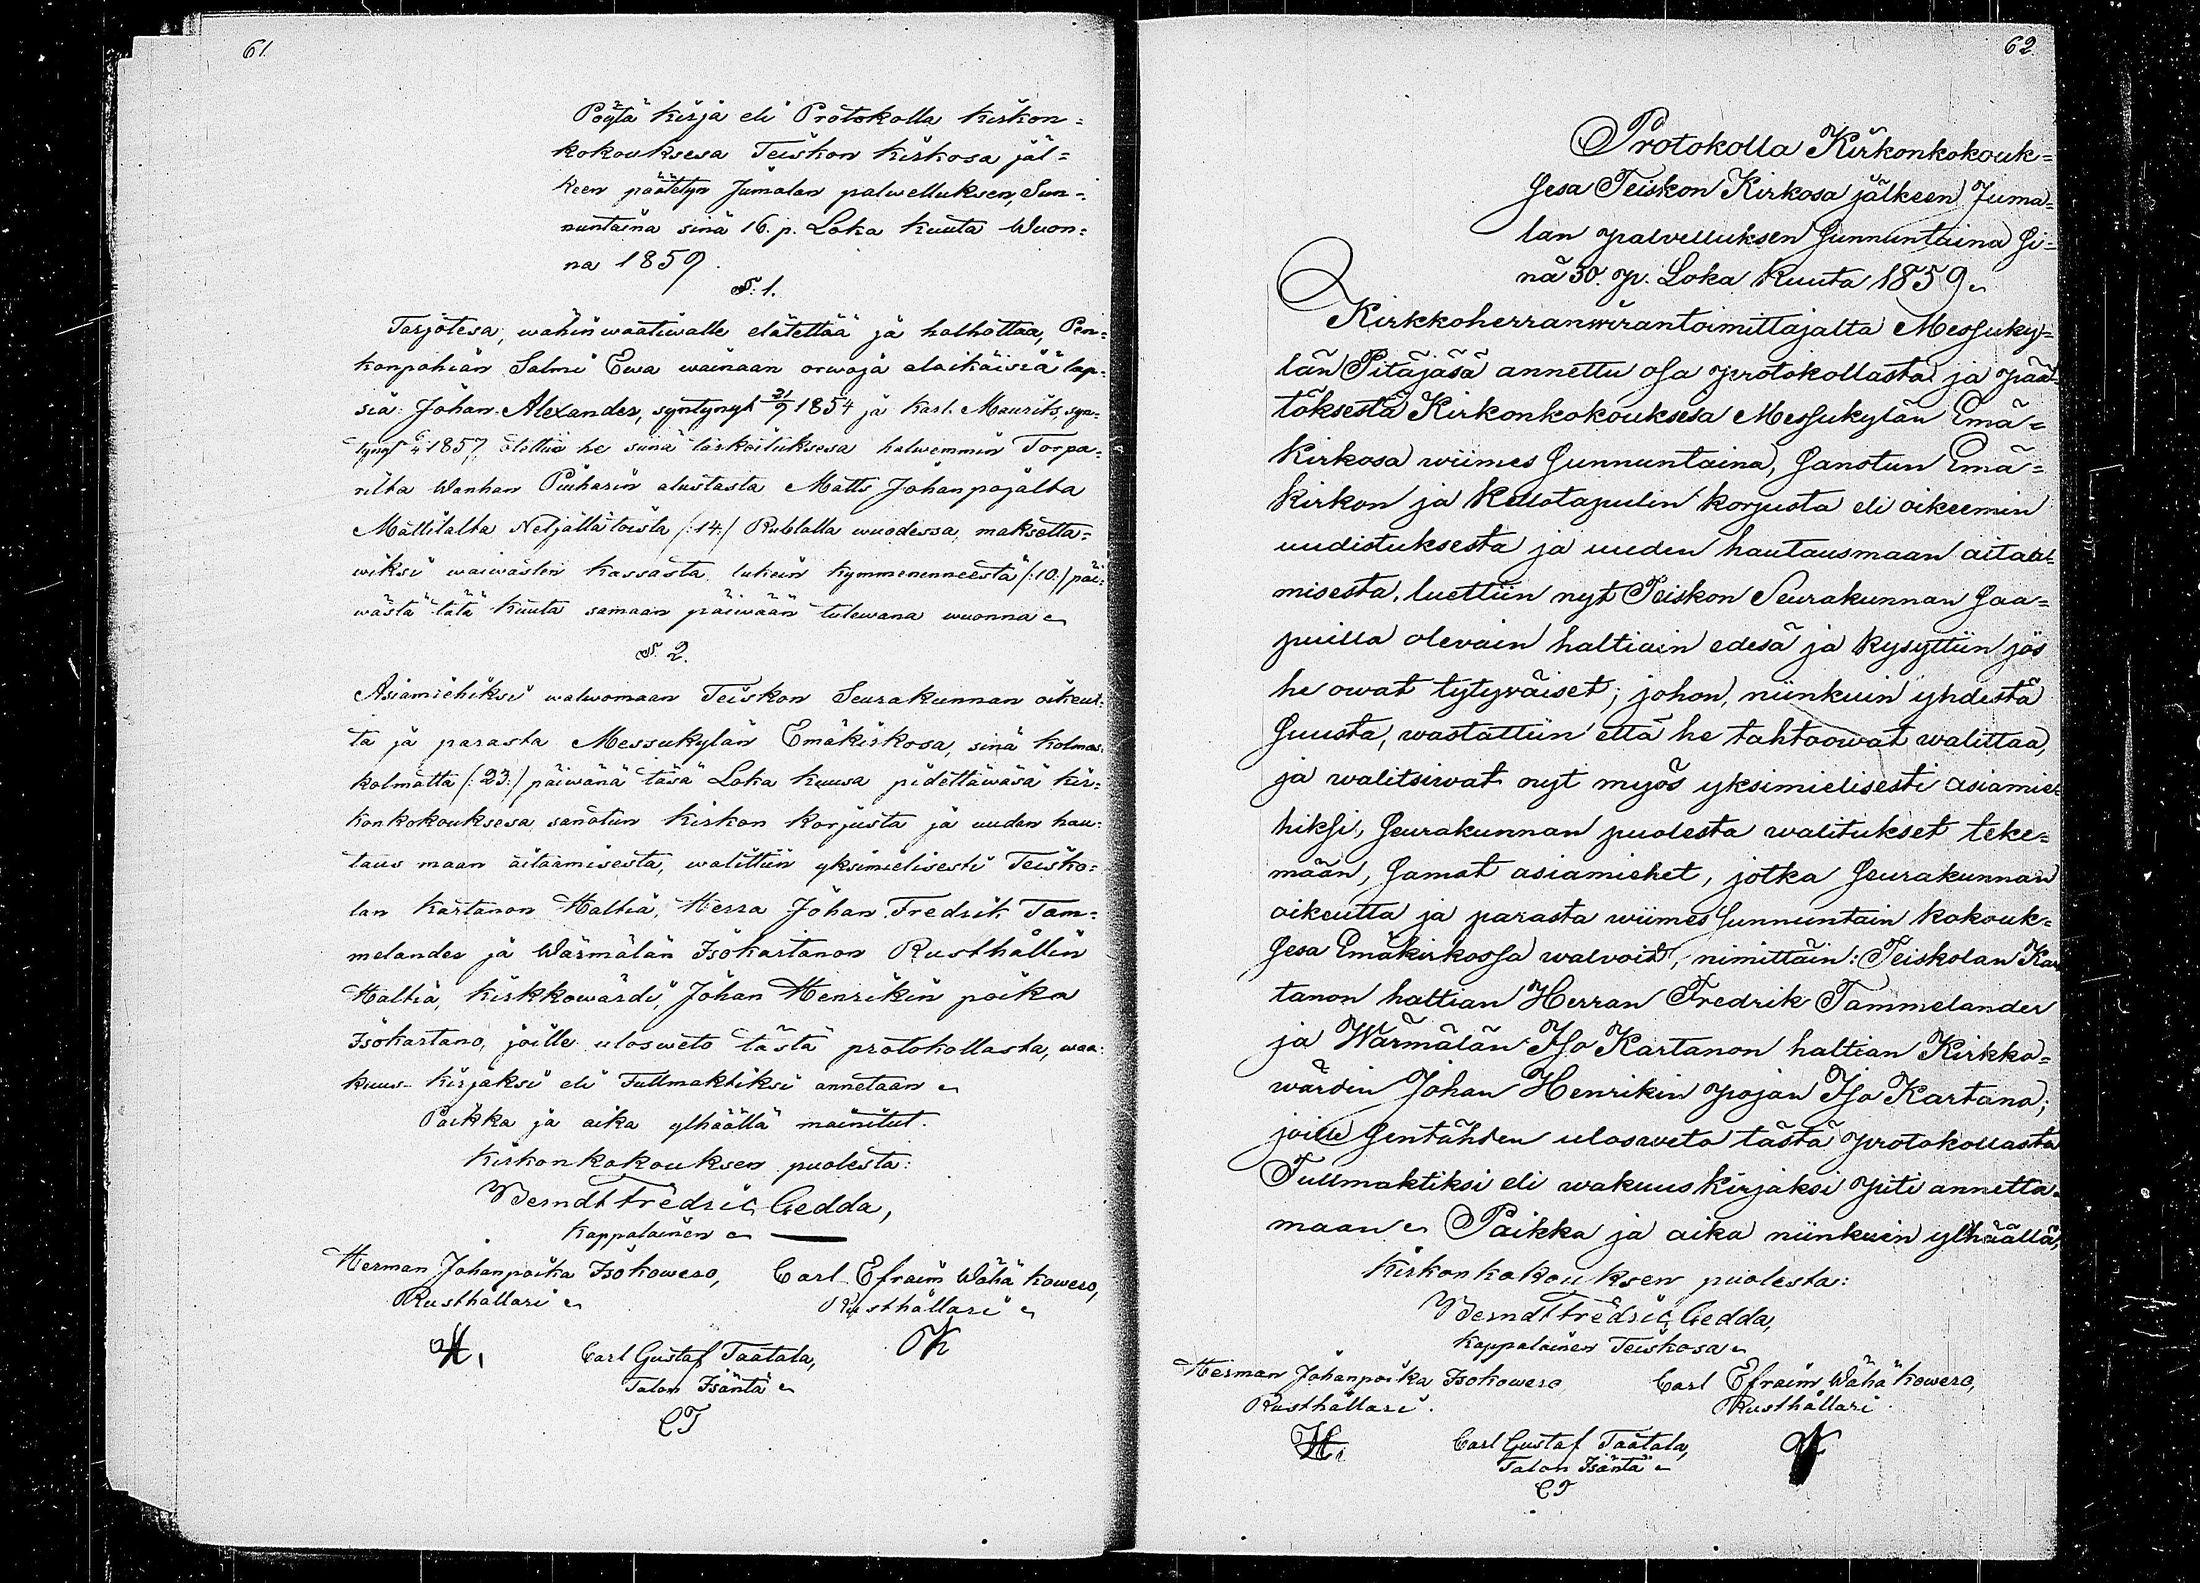 61.
Pöytä kirja eli Protokolla kirkon=
kokouksesa Teiskon kirkosa jäl=
keen päätetyn Jumalan palwelluksen, Sun=
nuntaina sinä 16. p. Loka kuuta Wuon=
na 1859.
§. 1.
Tarjotesa, wähin waatiwalle elätettää ja halhottaa, Pen=
konpohian Salmi Ewa wainaan orwoja alaikäisiä lap=
sia: Johan Alexander, syntynyt 21/9 1854 ja Karl Maurits, syn=
tynyt 1857, otettiin he siinä tarkoituksesa halwemmin Torpa=
rilta Wanhan Pulharin alustasta Matts Johanpojalta
Mattilalta Neljällätoista /:14:/ Rublalla wuodessa, maksetta=
wiksi waiwasten kassasta, lukein kymmenennestä /:10:/ päi=
wästä tätä kuuta samaan päiwään tulewana wuonna
§. 2.
Asiamiehiksi walwomaan Teiskon Seurakunnan oikeut=
ta ja parasta Messukylän Emäkirkosa, sinä kolmas=
kolmatta /:23:/ päiwänä täsä Loka kuusa pidettäwäsä kir=
kon kokouksesa, sanotun kirkon korjusta ja uuden hau=
taus maan aitaamisesta, walittiin yksimielisesti Teisko=
lan kartanon Haltia, Herra Johan Fredrik Tam=
melander ja Wärmälän Isokartanon Rusthållin
Haltia, kirkkowärdi, Johan Henrikin poika
Isokartano, joille ulosweto tästä protokollasta, waa=
kuus- kirjaksi eli Fullmaktiksi annetaan
Paikka ja aika ylhäällä mainitut.
Kirkonkokouksen puolesta:
Berndt Fredric Gedda,
Kappalainen
Herman Johanpoika Isokowero, Carl Efraim Wähä kowero,
Rusthållari Rusthållari
Carl Gustaf Taatala,
Talon Isäntä
CT
62.
Protokolla Kirkonkokouk=
sesa Teiskon Kirkosa jälkeen Juma=
lan palvelluksen sunnuntaina si=
nä 30. p. Loka Kuuta 1859
Kirkkoherranwirantoimittajalta Messuky=
län Pitäjäsä annettu osa protokollasta ja pää=
töksestä Kirkonkokouksesa Messukylän Emä=
Kirkosa wiimes sunnuntaina, sanotun Emä=
Kirkon ja Kellotapulin korjusta eli oikeemin
uudistuksesta ja uuden hautausmaan aitaa=
misesta, luettiin nyt Teiskon Seurakunnan saa=
puilla olevain haltiain edesä ja kysyttiin jos
he owat tytyväiset; johon, niinkuin yhdestä
suusta, wastattiin että he tahtoowat walittaa,
ja walitsiwat nyt myös yksimielisesti asiamie=
hiksi, seurakunnan puolesta walitukset teke=
mään, samat asiamiehet, jotka seurakunnan
oikeutta ja parasta wiimes sunnuntain kokouk=
sesa Emäkirkossa walvoit, nimittäin: Teiskolan Kar
tanon haltian Herran Fredrik Tammelander
ja Wärmälän Iso Kartanon haltian Kirkko=
wärdin Johan Henrikin pojan Iso Kartano;
joille sentähden ulosweto tästä protokollasta
Fullmaktiksi eli wakuus kirjaksi piti annetta=
maan Paikka ja aika niinkuin ylhäällä,
Kirkonkokouksen puolesta:
Berndt Fredric Gedda,
Kappalainen Teiskosa
Herman Johanpoika Isokowero Carl Efraim Wähä kowero,
Rusthållari. Rusthållari.
Carl Gustaf Taatala,
Talon Isäntä
CT